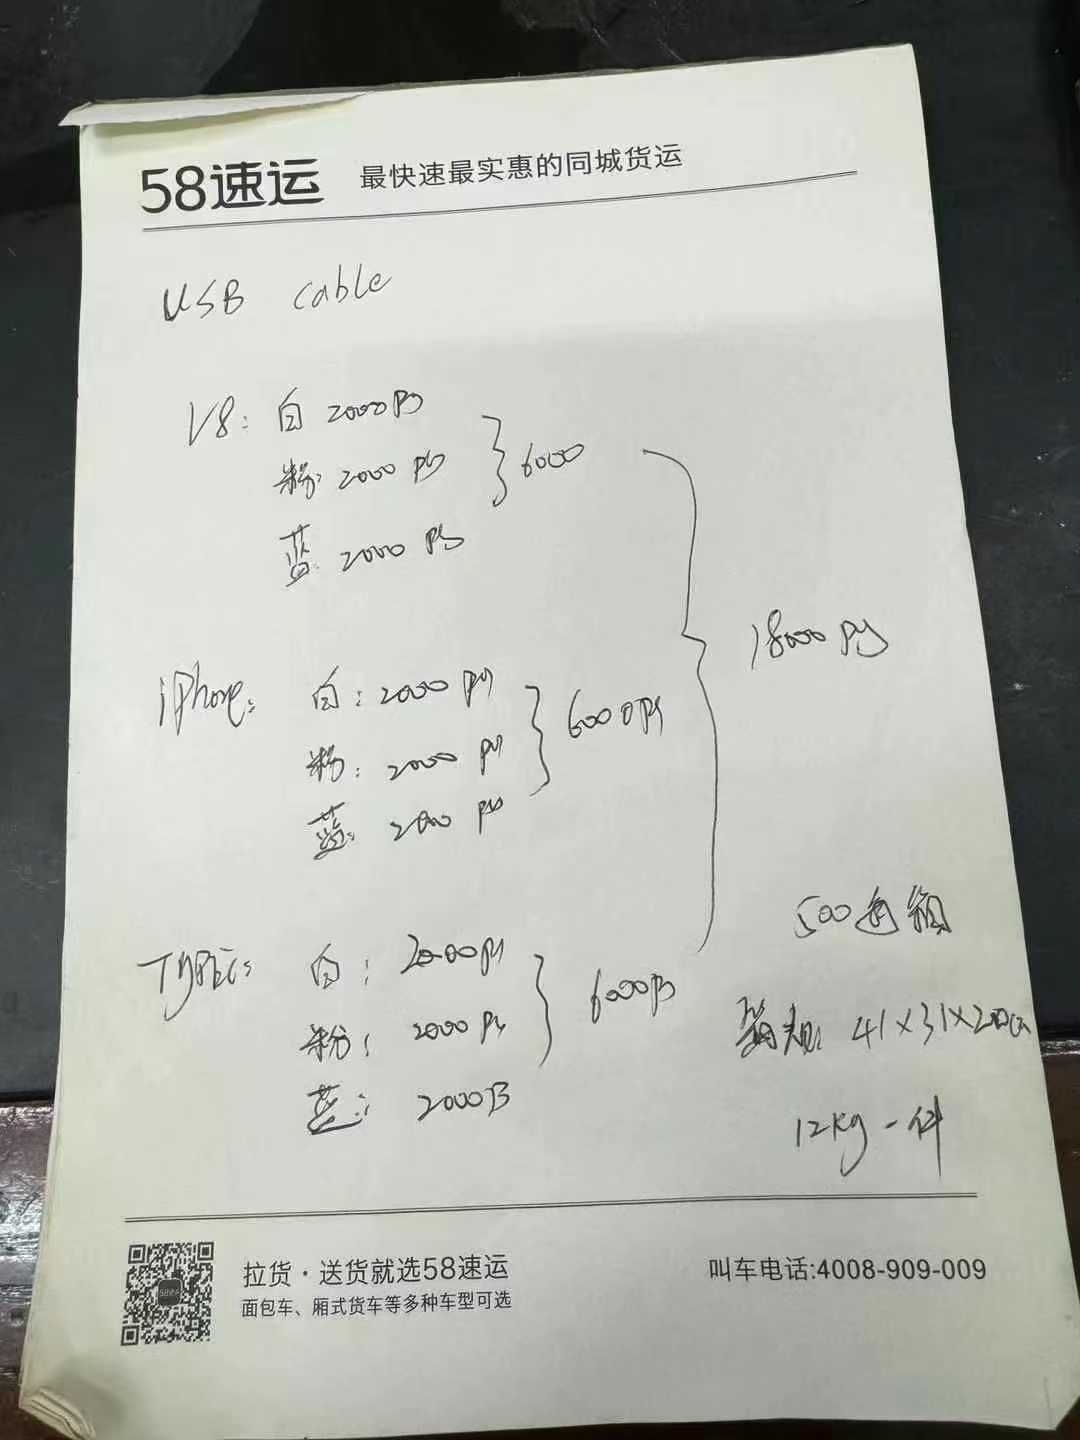 58速运 最快速最实惠的同城货运
USB cable
V8: 白 2000 PS
粉: 2000 PS } 6000
蓝: 2000 PS
18000 PS
iPhone: 白: 2000 PS
粉: 2000 PS } 6000 PS
蓝: 2000 PS
500每箱
Type-c: 白: 2000 PS
粉: 2000 PS } 6000 PS
箱规: 41×31×
蓝: 2000 PS
12kg 一件
拉货·送货就选58速运
面包车、厢式货车等多种车型可选
叫车电话:4008-909-009